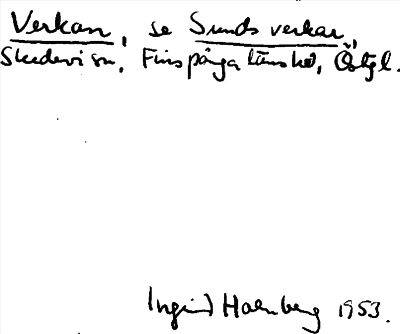 Verkan, se Sunds verkar,
Skedevi sn, Finspånga läns hd, Östgl.
Ingrid Holmberg 1953.